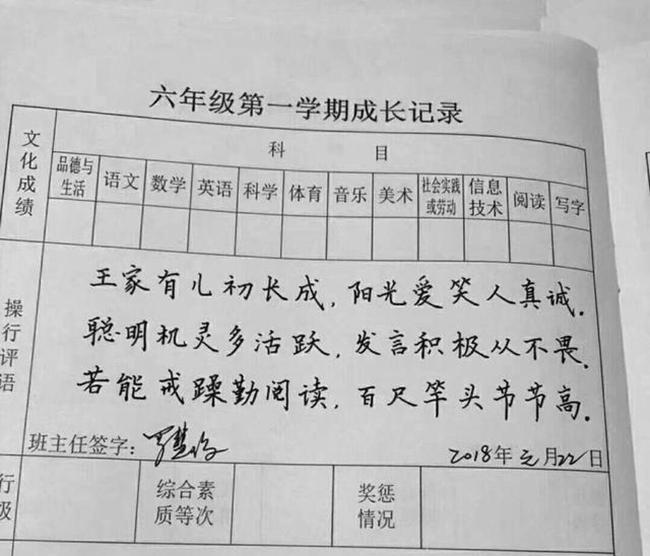 六年级第一学期成长记录
文化成绩
科 目
品德与生活 语文 数学 英语 科学 体育 音乐 美术 社会实践或劳动 信息技术 阅读 写字
操行评语
王家有儿初长成,阳光爱笑人真诚.
聪明机灵多活跃,发言积极从不畏.
若能戒躁勤阅读,百尺竿头节节高.
班主任签字:
2018年元月22日
行 综合素 奖惩
级 质等次 情况